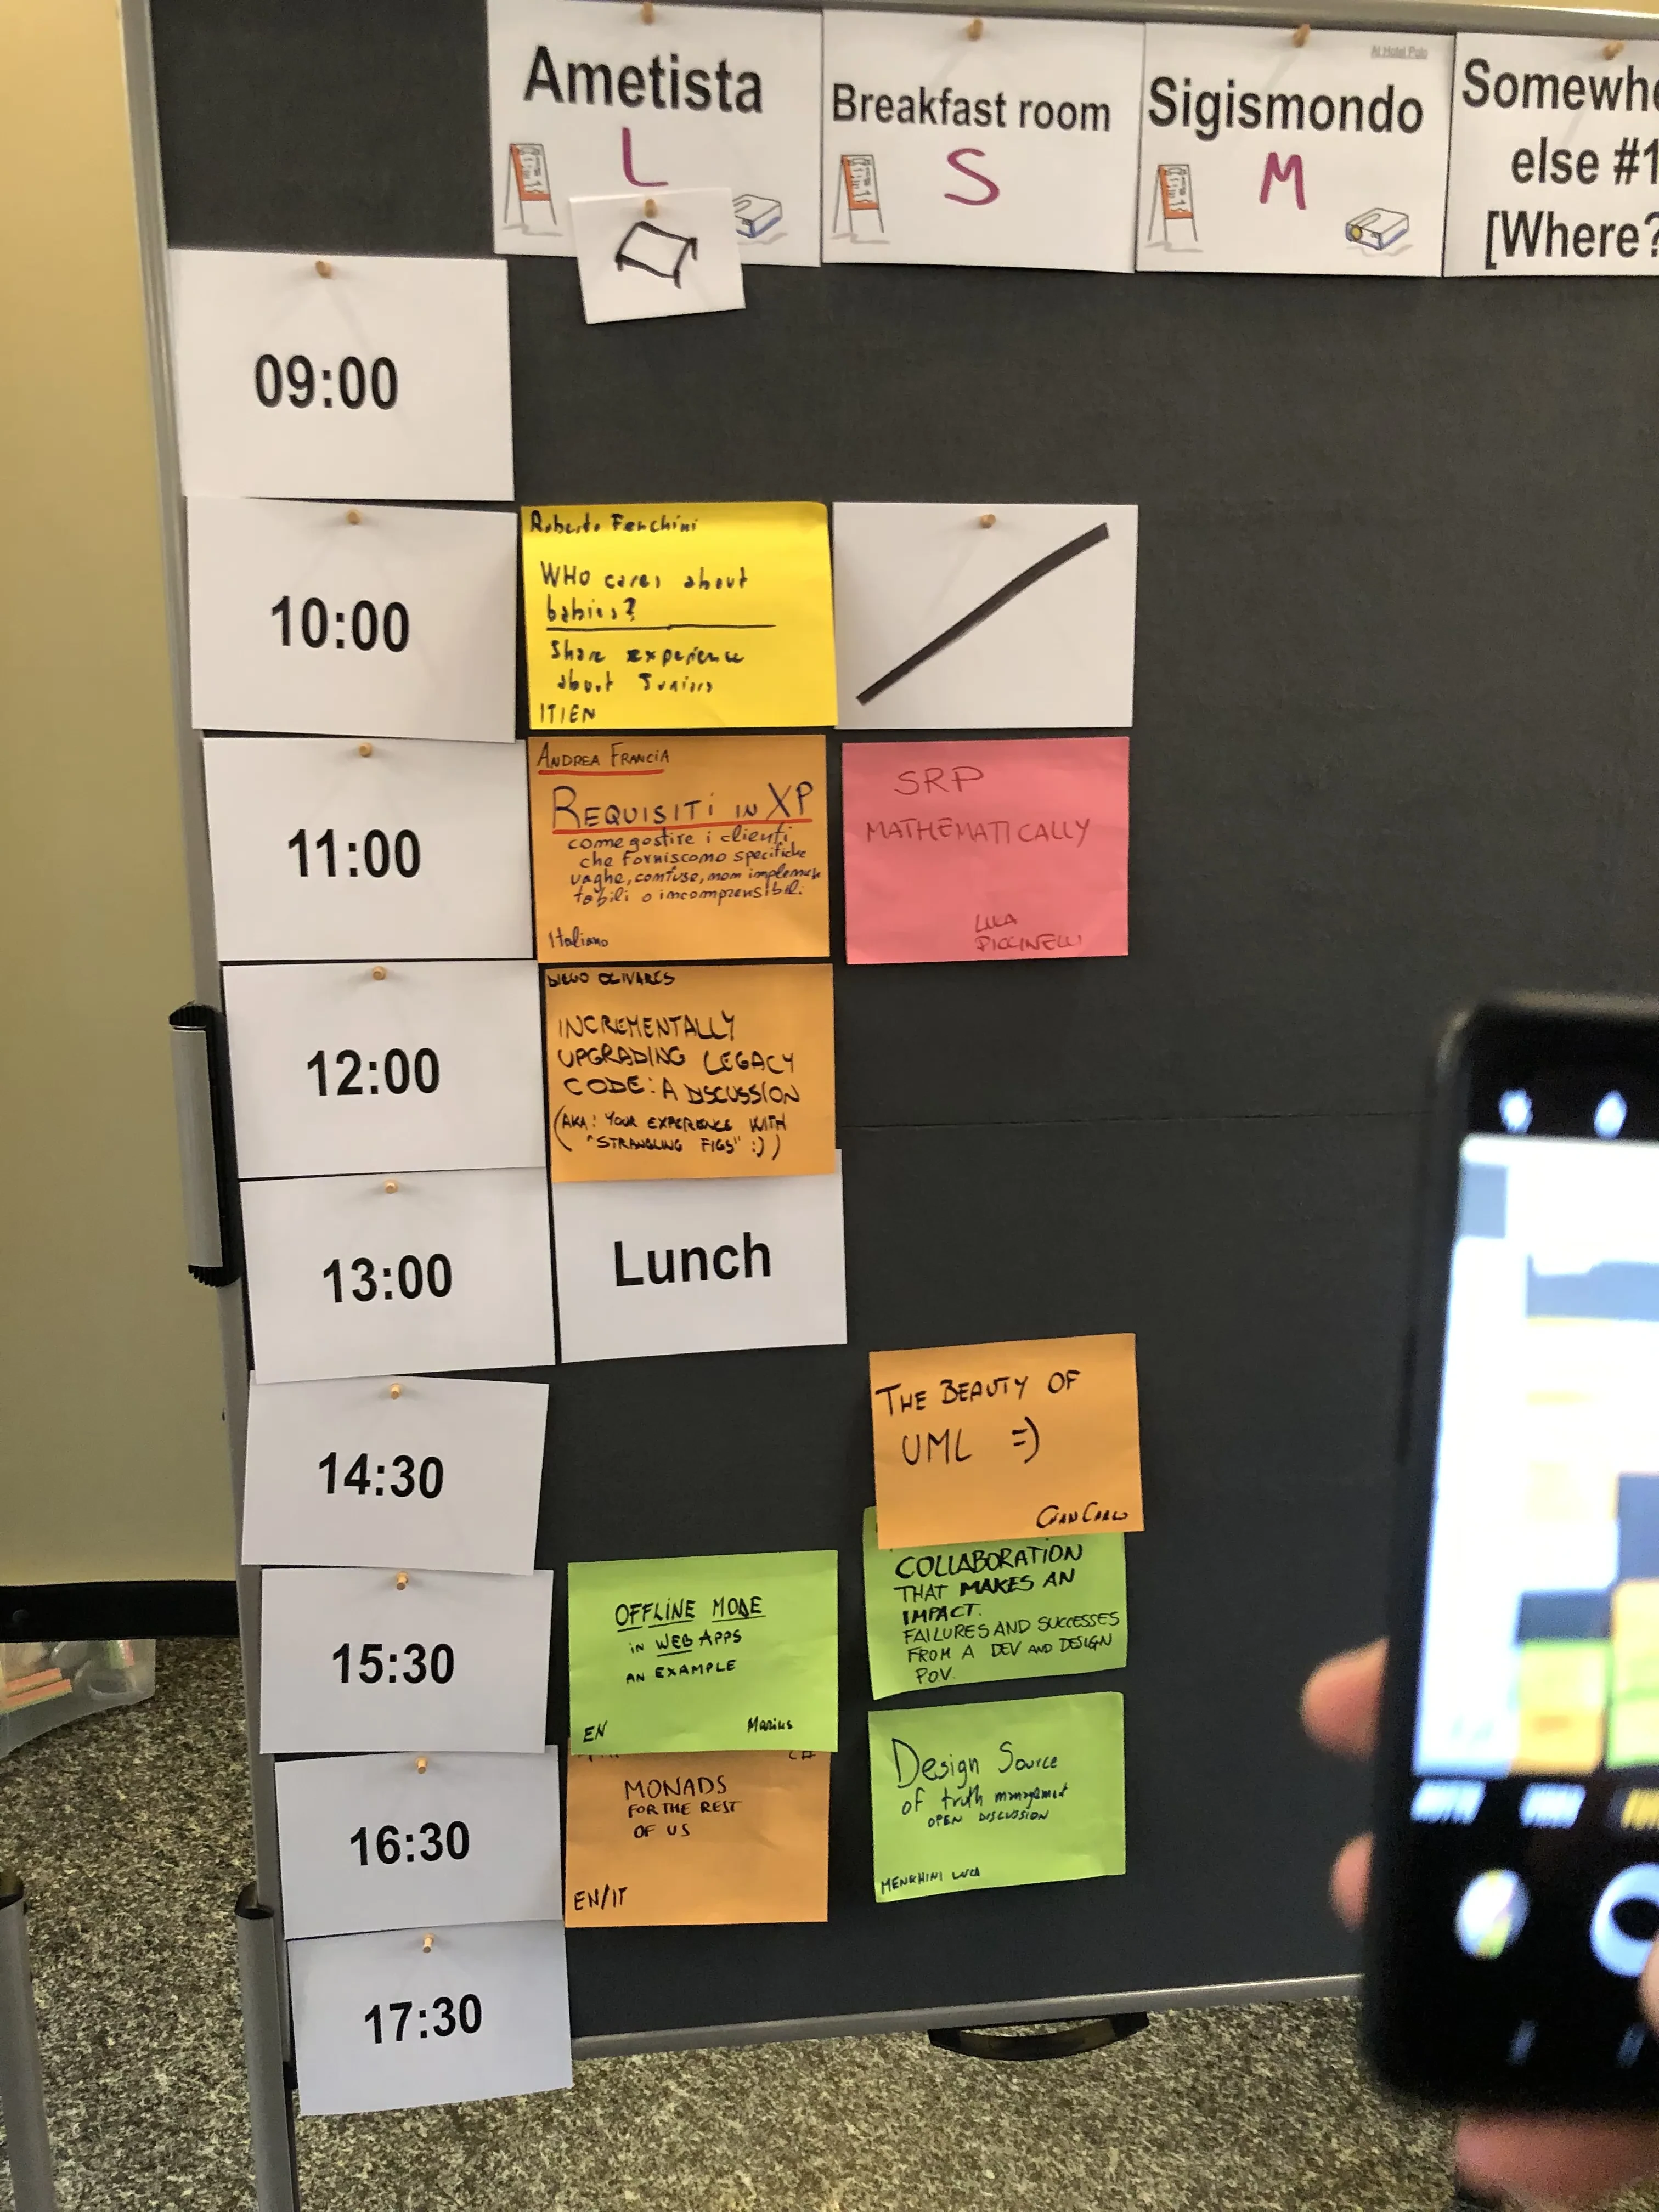 Ametista
L
Breakfast room
S
At Hotel Polo
Sigismondo
M
Somewhe
else #1
[Where?
09:00
10:00
Roberto Fenchini
WHO cares about
babies?
Share experience
about Juniors
IT/EN
11:00
ANDREA FRANCIA
REQUISITI IN XP
come gestire i clienti
che forniscono specifiche
vaghe, confuse, non implemen
tabili o incomprensibili.
Italiano
SRP
MATHEMATICALLY
LUCA
PICCINELLI
12:00
DIEGO OLIVARES
INCREMENTALLY
UPGRADING LEGACY
CODE: A DISCUSSION
(AKA: YOUR EXPERIENCE WITH
"STRANGLING FIGS" :))
13:00
Lunch
14:30
THE BEAUTY OF
UML =)
GIANCARLO
15:30
OFFLINE MODE
IN WEB APPS
AN EXAMPLE
EN
Marius
COLLABORATION
THAT MAKES AN
IMPACT.
FAILURES AND SUCCESSES
FROM A DEV AND DESIGN
POV.
16:30
C#
MONADS
FOR THE REST
OF US
EN/IT
Design Source
of truth management
OPEN DISCUSSION
MENGHINI LUCA
17:30